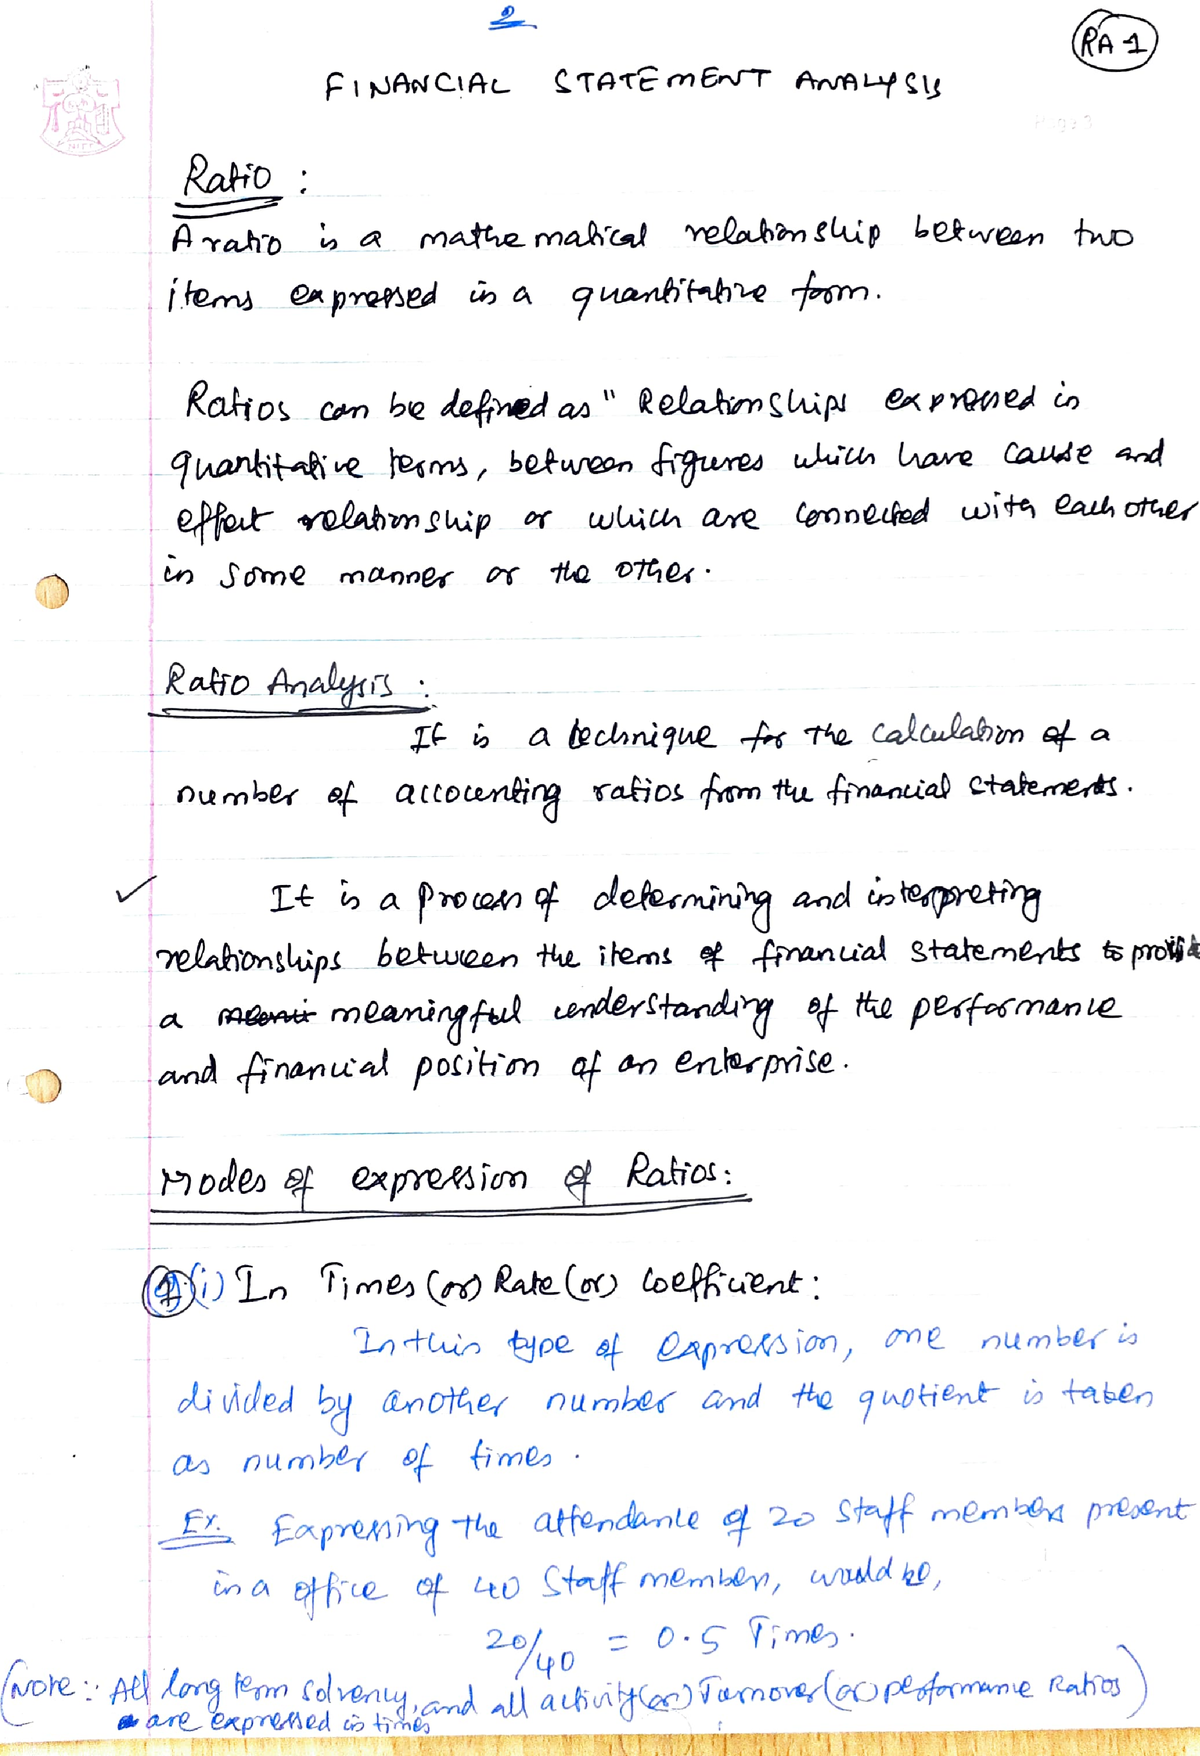 2
RA 1
FINANCIAL STATEMENT ANALYSIS
Page 3
NIFT
Ratio :
A ratio is a mathematical relationship between two
items expressed in a quantitative form.
Ratios can be defined as " Relationships expressed in
quantitative terms, between figures which have cause and
effect relationship or which are connected with each other
in some manner or the other.
Ratio Analysis :
It is a technique for the calculation of a
number of accounting ratios from the financial statements.
It is a process of determining and interpreting
relationships between the items of financial statements to provide
a meaningful understanding of the performance
and financial position of an enterprise.
Modes of expression of Ratios:
(i) In Times (or) Rate (or) coefficient:
In this type of expression, one number is
divided by another number and the quotient is taken
as number of times.
Ex. Expressing the attendance of 20 staff members present
in a office of 40 staff members, would be,
20/40 = 0.5 Times.
(Note: All long term solvency, and all activity (or) Turnover (or) performance Ratios)
are expressed in times